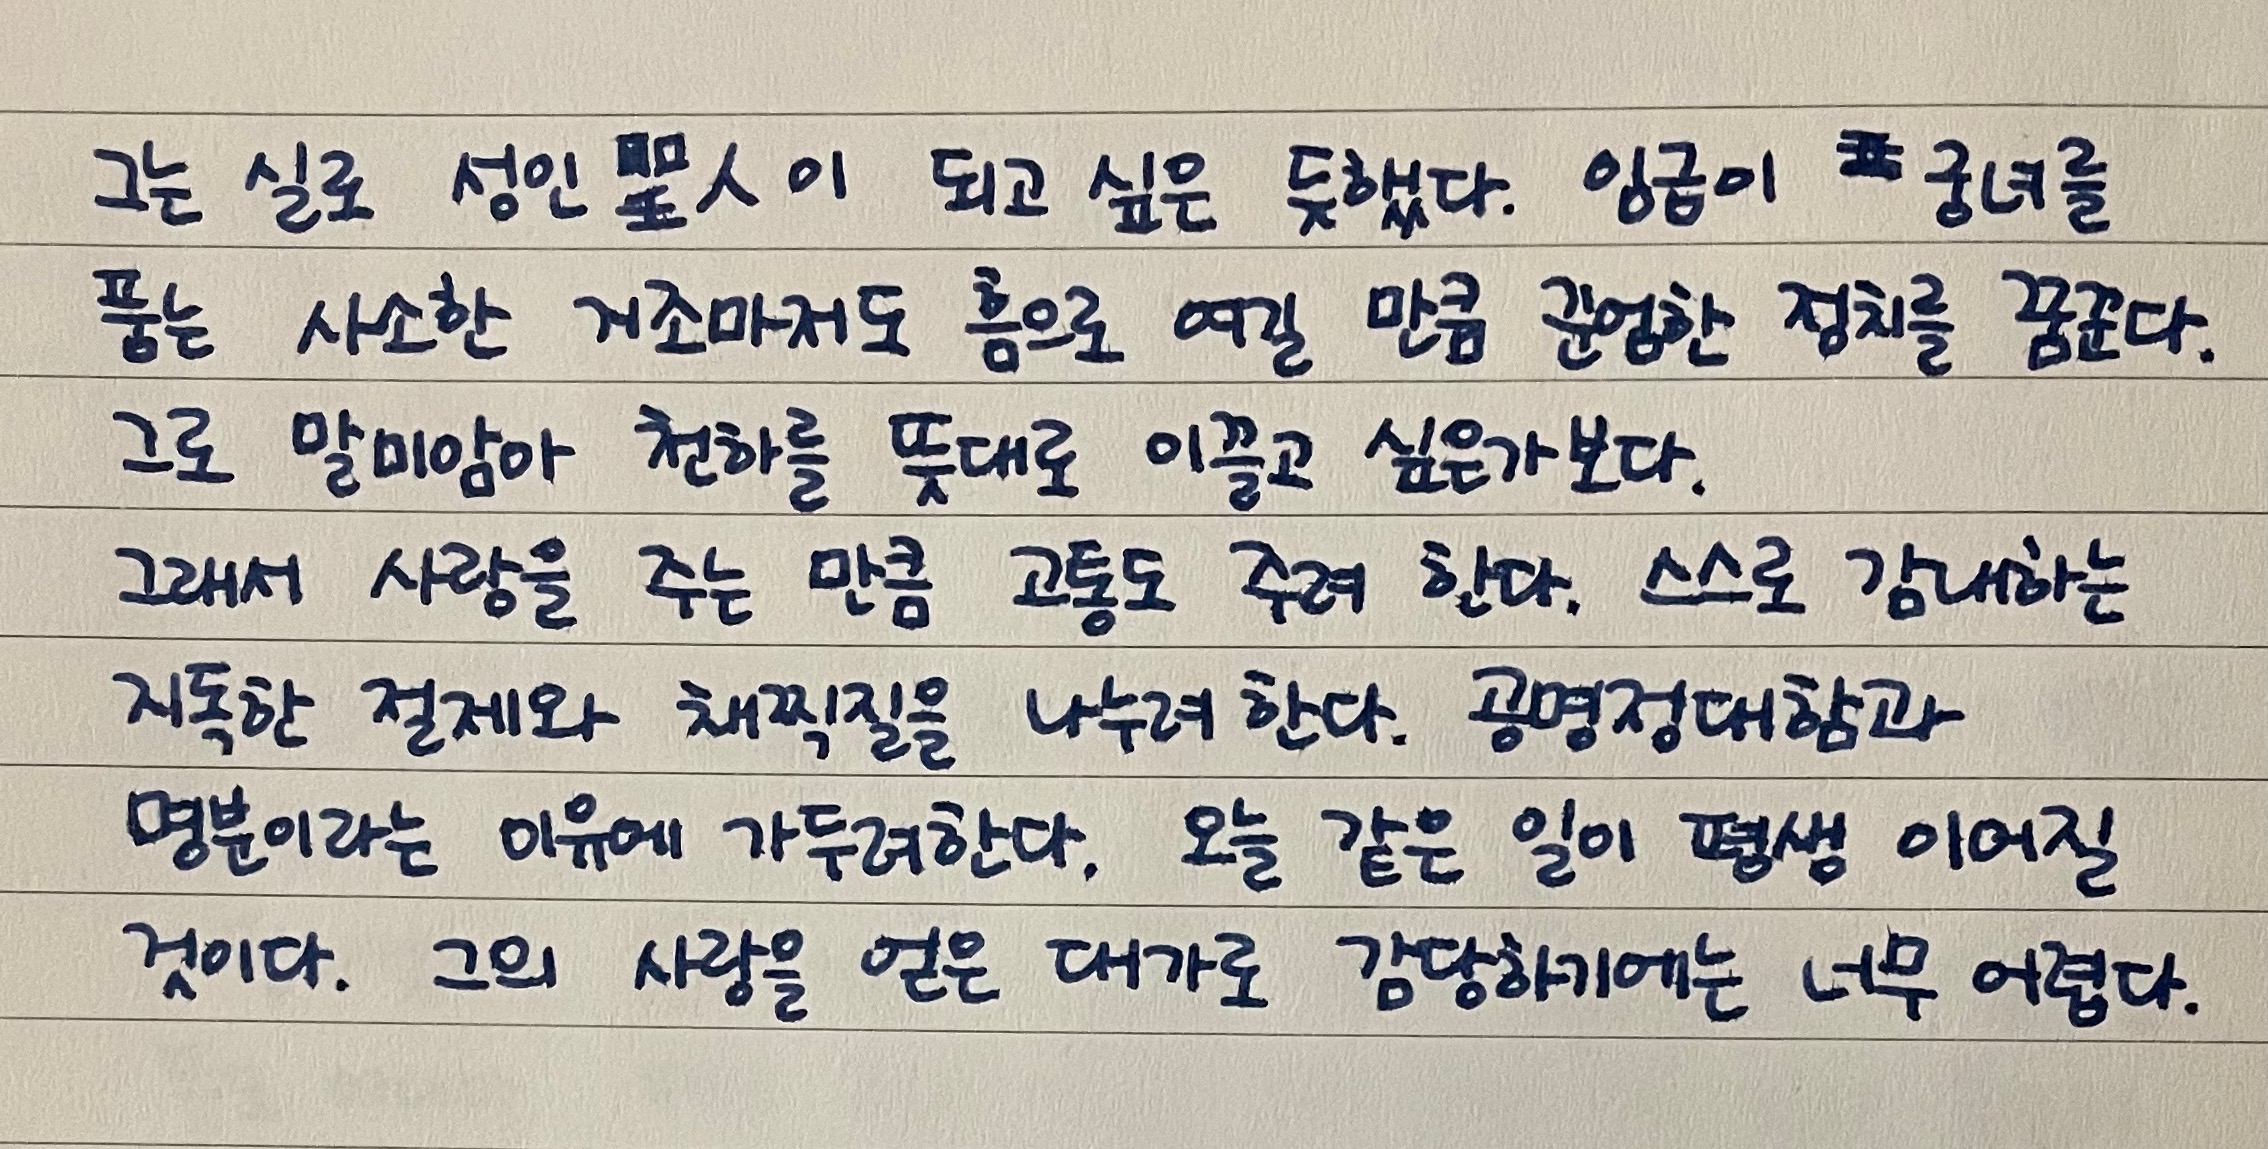 그는 실로 성인聖人이 되고 싶은 듯했다. 임금이 궁녀를
품는 사소한 거조마저도 흠으로 여길 만큼 준엄한 정치를 꿈꾼다.
그로 말미암아 천하를 뜻대로 이끌고 싶은가보다.
그래서 사랑을 주는 만큼 고통도 주려 한다. 스스로 감내하는
지독한 절제와 채찍질을 나누려 한다. 공명정대함과
명분이라는 이유에 가두려한다. 오늘 같은 일이 평생 이어질
것이다. 그의 사랑을 얻은 대가로 감당하기에는 너무 어렵다.